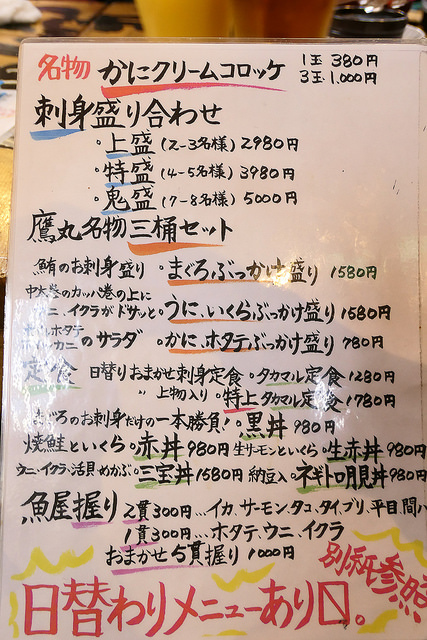 名物 かにクリームコロッケ 1玉 380円
3玉 1,000円
刺身盛り合わせ
・上盛 (2-3名様) 2980円
・特盛 (4-5名様) 3980円
・鬼盛 (7-8名様) 5000円
鷹丸名物 三桶セット
鮪のお刺身盛り ・まぐろ、ぶっかけ盛り 1580円
中太巻のカッパ巻の上に
ウニ、イクラがドサッと ・うに、いくらぶっかけ盛り 1580円
ホタテ
カニのサラダ ・かに、ホタテぶっかけ盛り 780円
定食 日替りおまかせ刺身定食 ・タカマル定食 1280円
〃 上物入り ・特上タカマル定食 1780円
まぐろのお刺身だけの一本勝負! ・黒丼 980円
焼鮭といくら ・赤丼 980円 生サーモンといくら ・生赤丼 980円
ウニ・イクラ・活貝・めかぶ ・三宝丼 1580円 納豆入 ・ネギトロ月見丼 980円
魚屋握り 2貫300円…イカ、サーモン、タコ、タイ、ブリ、平目、間八
1貫300円…ホタテ、ウニ、イクラ
おまかせ5貫握り 1000円
別紙参照
日替わりメニューあり〼。